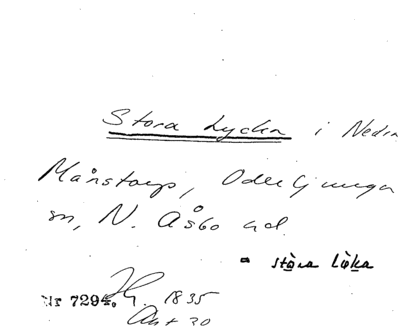 Stora Lycka i Nedra
Månstorp, Oderljunga
sn, N. Åsbo hd.
= stora løka
Nr 7294. Hg. 1835
Akt 20